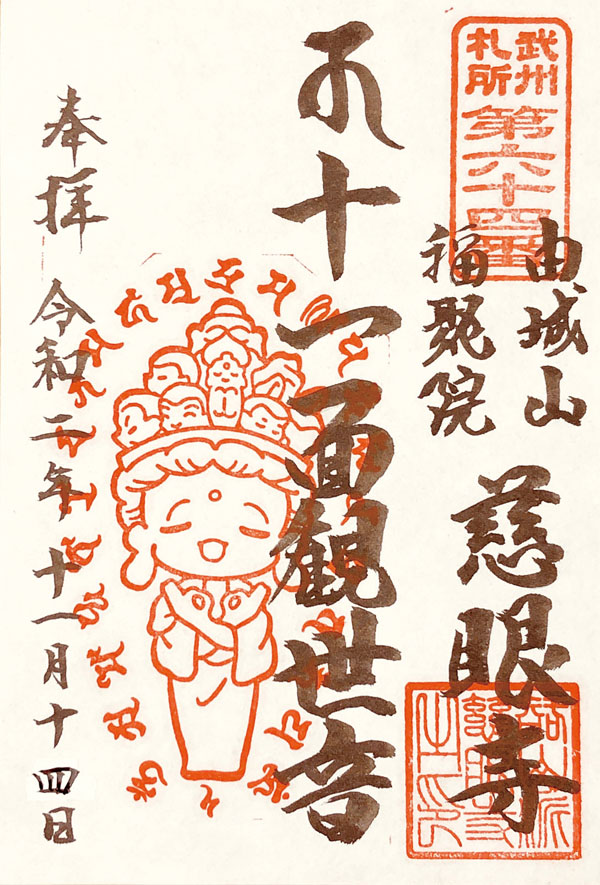 武州
札所
第六十四番
由城山
福聚院
慈眼寺
十一面観世音
奉拝 令和二年十一月十四日